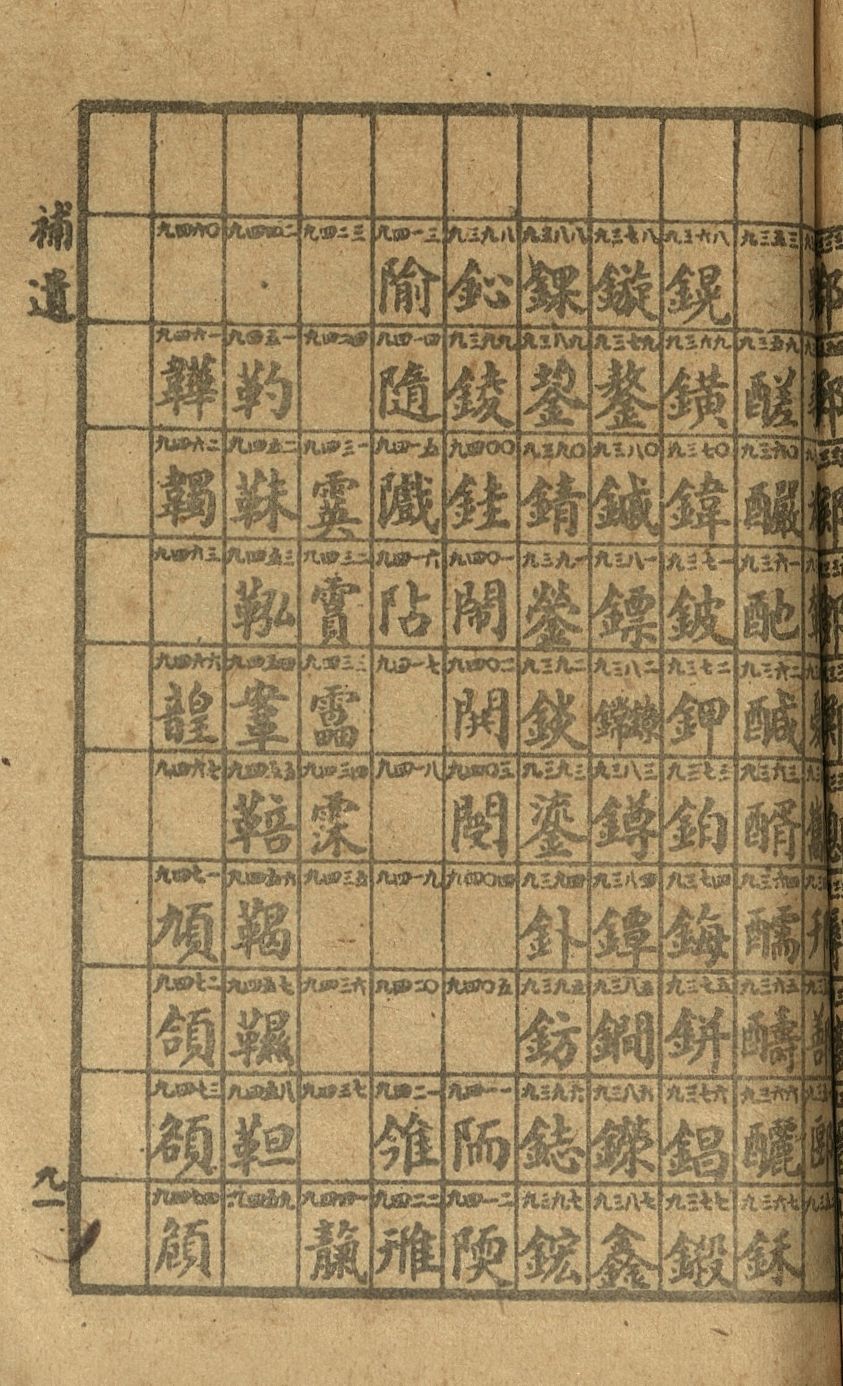 補遺
九一
九三五八
九三五九 醝
九三六〇 釅
九三六一 酏
九三六二 醎
九三六三 醑
九三六四 醹
九三六五 醻
九三六六 釃
九三六七
九三六八 鎤
九三六九 鐄
九三七〇 鍏
九三七一 鈹
九三七二 鉀
九三七三 鉑
九三七四 鋂
九三七五 鉼
九三七六 錩
九三七七 鍛
九三七八 鏇
九三七九 鏊
九三八〇 鋮
九三八一 鏢
九三八二
九三八三 鐏
九三八四 鐔
九三八五 鐗
九三八六 鑅
九三八七 鑫
九三八八 錁
九三八九 鋆
九三九〇 錆
九三九一 鎣
九三九二 錟
九三九三 鎏
九三九四 釙
九三九五 鈁
九三九六 鋕
九三九七 鋐
九三九八 鈊
九三九九 錂
九四〇〇 銈
九四〇一 鬧
九四〇二
九四〇三
九四〇四
九四〇五
九四一一 陑
九四一二
九四一三 隃
九四一四 隨
九四一五
九四一六 阽
九四一七
九四一八
九四一九
九四二〇
九四二一 雂
九四二二 雃
九四二三
九四二四
九四三一 霙
九四三二 霣
九四三三 靁
九四三四 霂
九四三五
九四三六
九四三七
九四四一
九四四二
九四五一 靮
九四五二 韎
九四五三 鞃
九四五四
九四五五 鞛
九四五六 鞨
九四五七 韅
九四五八 靼
九四五九
九四六〇
九四六一 韡
九四六二 韣
九四六三
九四六六 韹
九四六七
九四七一 頄
九四七二 頜
九四七三 頟
九四七四